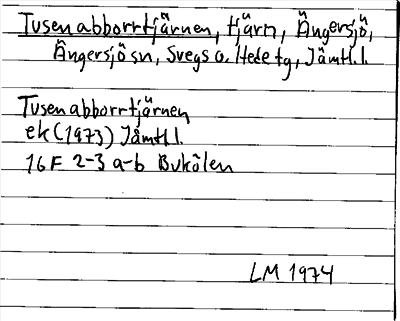 Tusenabborrtjärnen, tjärn, Ängersjö,
Ängersjö sn, Svegs o. Hede tg, Jämtl. l.
Tusenabborrtjärnen
ek (1973) Jämtl. l.
16F 2-3 a-b Bukölen
LM 1974